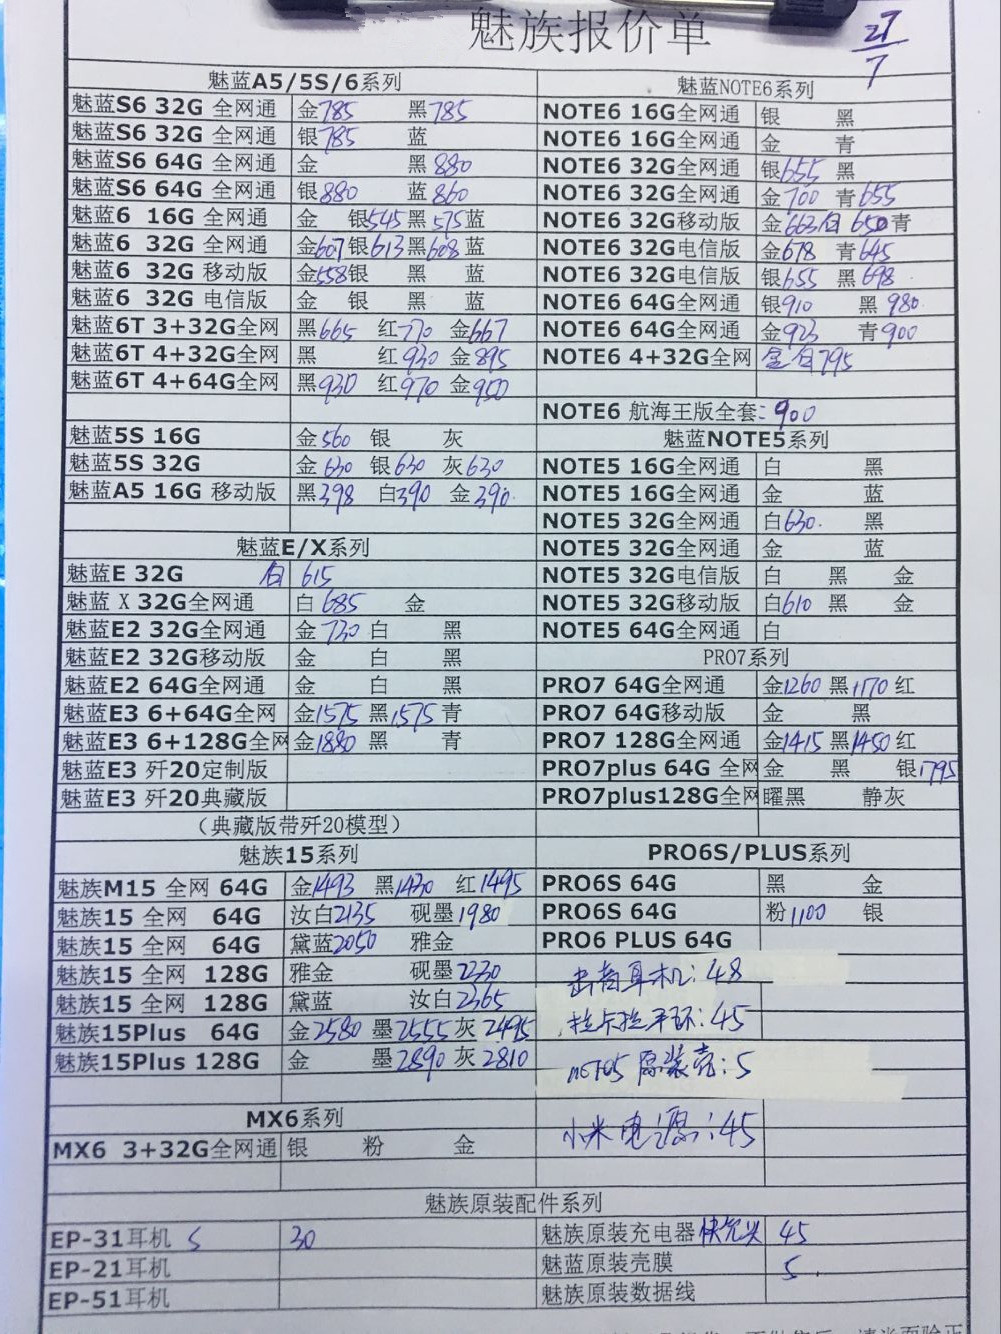 魅族报价单
27/7
魅蓝A5/5S/6系列
魅蓝S6 32G 全网通 金785 黑785
魅蓝S6 32G 全网通 银785 蓝
魅蓝S6 64G 全网通 金 黑880
魅蓝S6 64G 全网通 银880 蓝860
魅蓝6 16G 全网通 金 银545 黑575 蓝
魅蓝6 32G 全网通 金607 银613 黑608 蓝
魅蓝6 32G 移动版 金558 银 黑 蓝
魅蓝6 32G 电信版 金 银 黑 蓝
魅蓝6T 3+32G全网 黑665 红770 金667
魅蓝6T 4+32G全网 黑 红930 金895
魅蓝6T 4+64G全网 黑930 红970 金950
魅蓝5S 16G 金560 银 灰
魅蓝5S 32G 金630 银630 灰630
魅蓝A5 16G 移动版 黑398 白390 金390.
魅蓝E/X系列
魅蓝E 32G 白 615
魅蓝 X 32G全网通 白685 金
魅蓝E2 32G全网通 金730 白 黑
魅蓝E2 32G移动版 金 白 黑
魅蓝E2 64G全网通 金 白 黑
魅蓝E3 6+64G全网 金1575 黑1575 青
魅蓝E3 6+128G全网 金1880 黑 青
魅蓝E3 歼20定制版
魅蓝E3 歼20典藏版
（典藏版带歼20模型）
魅族15系列
魅族M15 全网 64G 金1493 黑1430 红1495
魅族15 全网 64G 汝白2135 砚墨1980
魅族15 全网 64G 黛蓝2050 雅金
魅族15 全网 128G 雅金 砚墨2230
魅族15 全网 128G 黛蓝 汝白2365
魅族15Plus 64G 金2580 墨2555 灰2495
魅族15Plus 128G 金 墨2890 灰2810
MX6系列
MX6 3+32G全网通 银 粉 金
魅蓝NOTE6系列
NOTE6 16G全网通 银 黑
NOTE6 16G全网通 金 青
NOTE6 32G全网通 银655 黑
NOTE6 32G全网通 金700 青655
NOTE6 32G移动版 金663 白650 青
NOTE6 32G电信版 金678 青645
NOTE6 32G电信版 银655 黑698
NOTE6 64G全网通 银910 黑980.
NOTE6 64G全网通 金923 青900
NOTE6 4+32G全网 金白795
NOTE6 航海王版全套：900
魅蓝NOTE5系列
NOTE5 16G全网通 白 黑
NOTE5 16G全网通 金 蓝
NOTE5 32G全网通 白630. 黑
NOTE5 32G全网通 金 蓝
NOTE5 32G电信版 白 黑 金
NOTE5 32G移动版 白610 黑 金
NOTE5 64G全网通 白
PRO7系列
PRO7 64G全网通 金1260 黑1170 红
PRO7 64G移动版 金 黑
PRO7 128G全网通 金1415 黑1450 红
PRO7plus 64G 全网 金 黑 银1795
PRO7plus128G全网 曜黑 静灰
PRO6S/PLUS系列
PRO6S 64G 黑 金
PRO6S 64G 粉1100 银
PRO6 PLUS 64G
耳机：48
拉卡拉手环：45
note5 原装壳：5
小米电源：45
魅族原装配件系列
EP-31耳机 S 30
EP-21耳机
EP-51耳机
魅族原装充电器 快充头 45
魅蓝原装壳膜 5.
魅族原装数据线